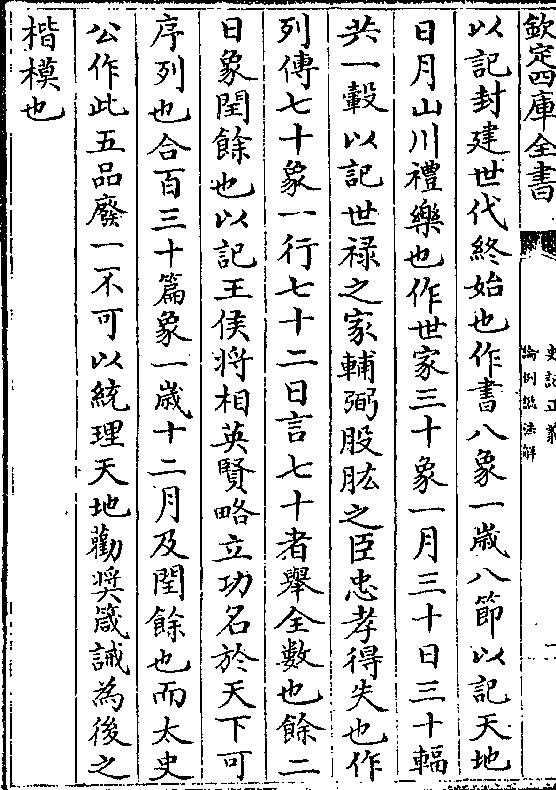 欽定四庫全書
史記正義
論例諡法解
以記封建世代終始也作書八象一歲八節以記天地
日月山川禮樂也作世家三十象一月三十日三十輻
共一轂以記世禄之家輔弼股肱之臣忠孝得失也作
列傳七十象一行七十二日言七十者舉全數也餘二
日象閏餘也以記王侯將相英賢略立功名於天下可
序列也合百三十篇象一歲十二月及閏餘也而太史
公作此五品廢一不可以統理天地勸奨箴誡為後之
楷模也